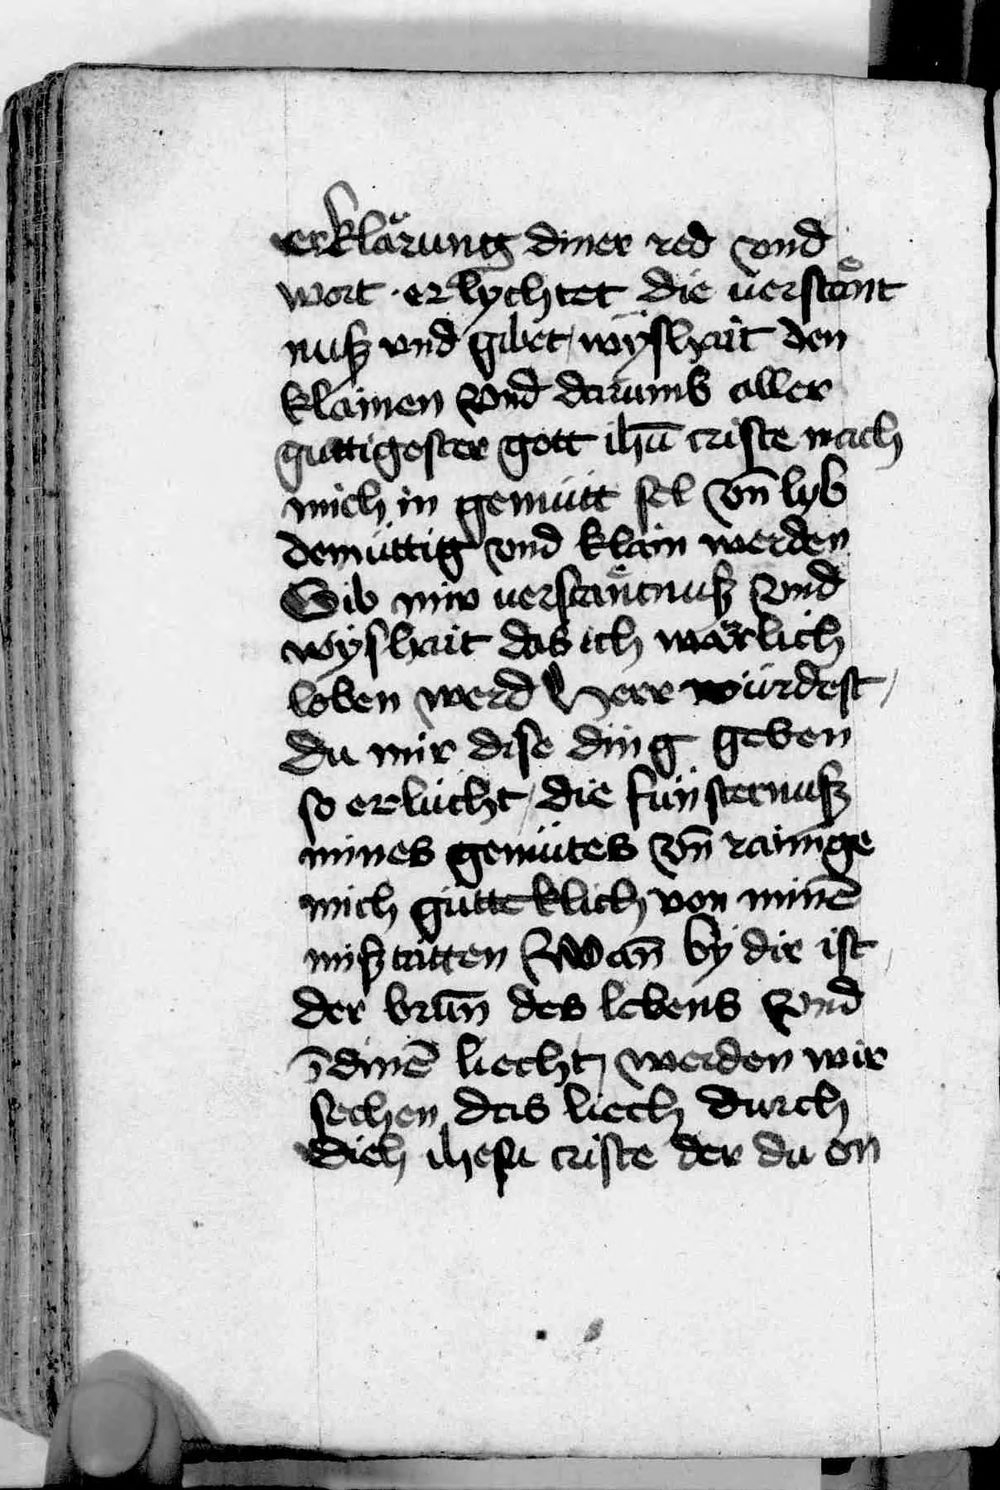 erklaͤrung diner red vnd
wort · erlychtet die uerstaͤnt
nuß vnd gibet / wÿshait den
klainen vnd darumb aller
guttigoster gott ihū criste mach
mich in gemütt sel vn̄ lyb
demüttig vnd klain werden
Gib mir uerstaͤntnuß vnd
wÿshait das ich waͤrlich
loben werd Herr würdest /
du mir dise ding geben
so erlücht / die fünsternuß
mines gemütes vn̄ rainige
mich gütteklich von minē
mißtätten Wan̄ bÿ dir ist /
der brun̄ des lebens vnd
ī dinē liecht / werden wir
sechen das liech durch
dich ihesu criste der du on